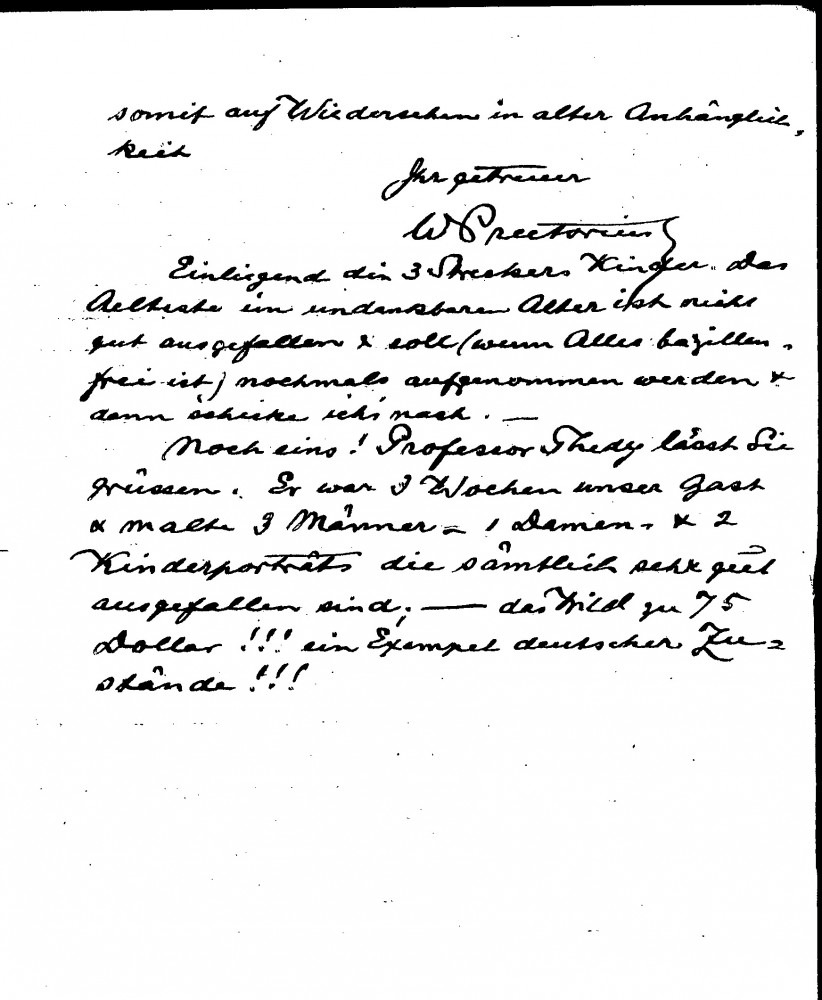 somit auf Wiedersehen in alter Anhänglich-
keit
Ihr getreuer
W Preetorius
Einliegend die 3 Streckers Kinder. Das
Aelteste im undankbaren Alter ist nicht
gut ausgefallen & soll (wenn Alles bazillen-
frei ist) nochmals aufgenommen werden &
dann schicke ich's nach. —
Noch eins! Professor Thedy lässt Sie
grüssen. Er war 3 Wochen unser Gast
& malte 3 Männer- 1 Damen- & 2
Kinderporträts die sämtlich sehr gut
ausgefallen sind; — das Bild zu 75
Dollar !!! ein Exempel deutscher Zu-
stände !!!